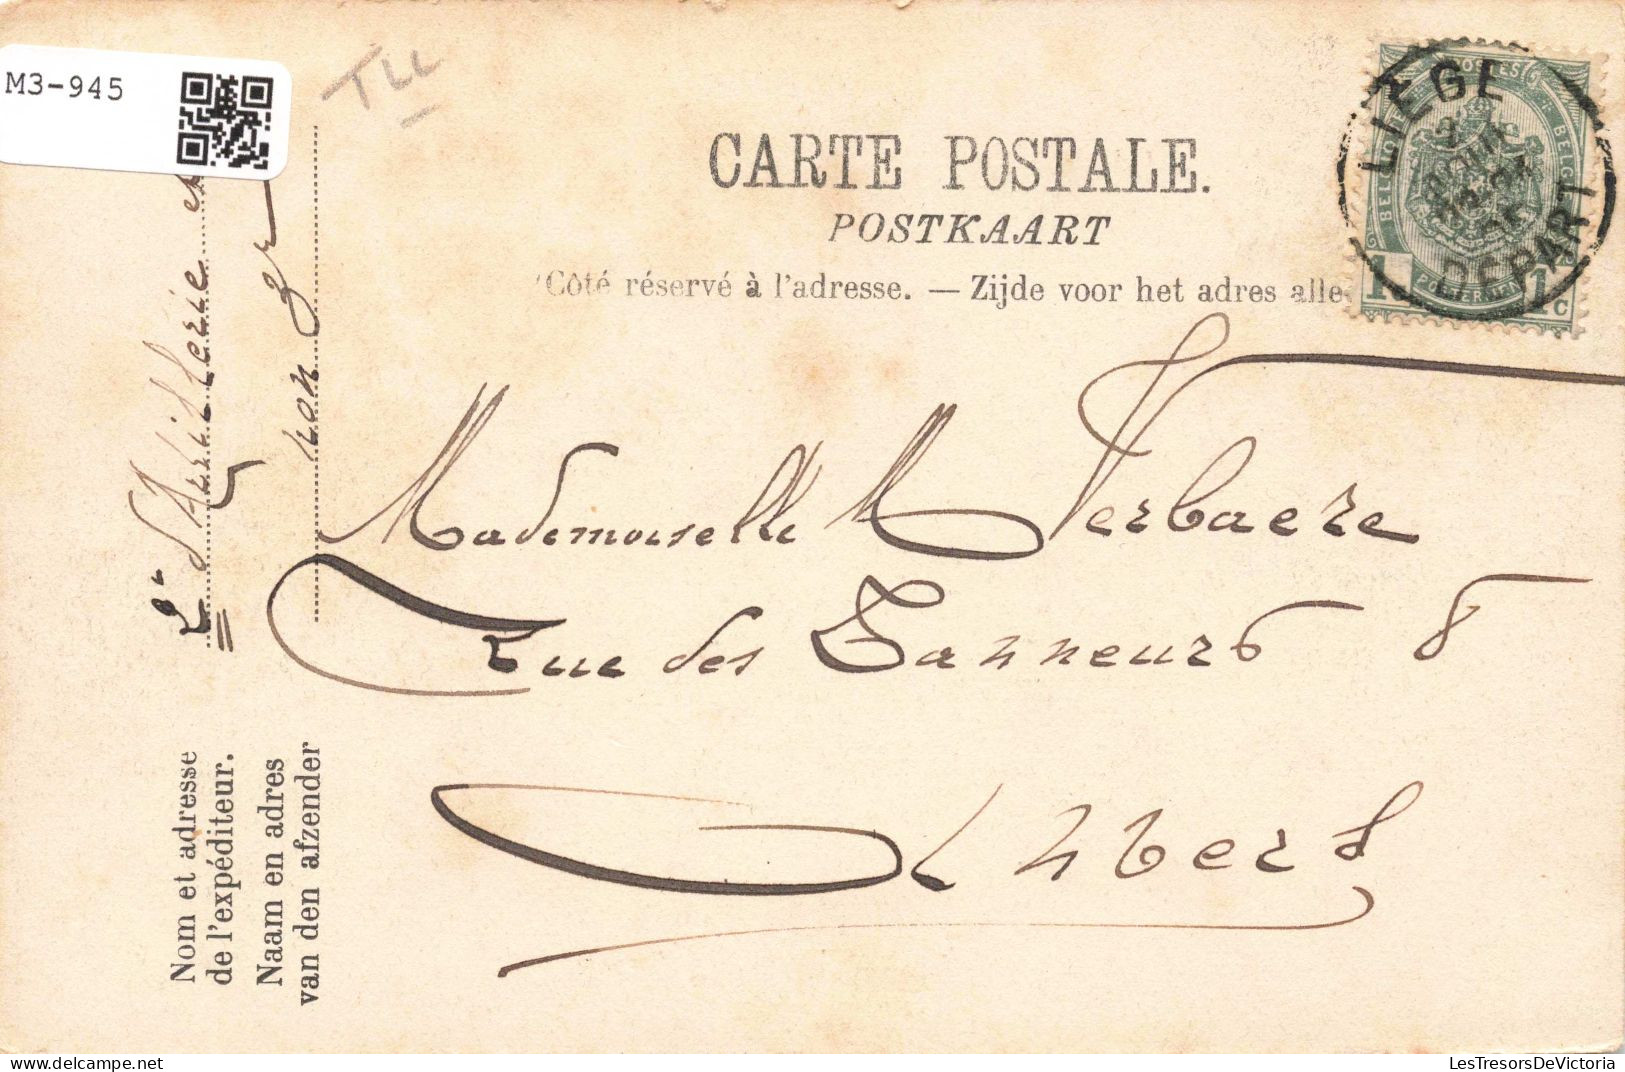 M3-945
TLL
CARTE POSTALE.
POSTKAART
Côté réservé à l'adresse. — Zijde voor het adres alle
LIEGE
DEPART
POSTES
1 1c
Mademoiselle M Verbaere
Rue des Tanneurs 8
Anvers
d'Artillerie
non
Nom et adresse
de l'expéditeur.
Naam en adres
van den afzender
LesTresorsDeVictoria